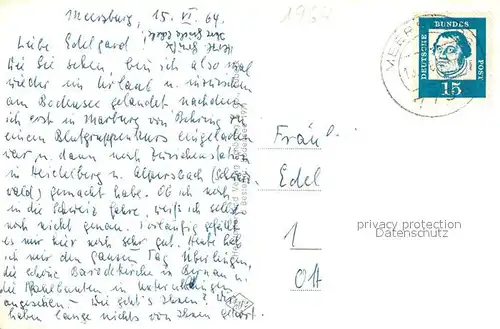 Meersburg, 15. VI. 64.
1964
Liebe Edelgard!
Bei Sie sehen, bin ich also mal
wieder im Urlaub u. inzwischen
am Bodensee gelandet nachdem
ich erst in Marburg von Behring zu
einem Blutgruppenkurs eingeladen
war u. dann noch Zwischenstation
in Heidelberg u. Alpirsbach (Schwarz-
wald) gemacht habe. Ob ich noch
in die Schweiz fahre, weiß ich selbst
noch nicht genau. Vorläufig gefällt
es mir hier noch sehr gut. Heute hab
ich mir den ganzen Tag Überlingen,
die schöne Barockkirche in Birnau u.
die Pfahlbauten in Unteruhldingen
angesehen. – Wie geht's Ihnen? Wir
haben lange nichts von Ihnen gehört.
DEUTSCHE
BUNDES
POST
15
MEERS
Fräul.
Edel
1
privacy protection
Datenschutz